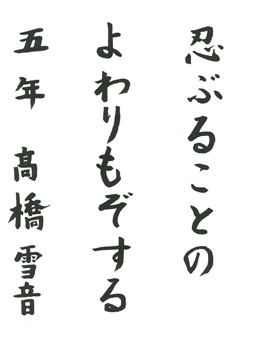 忍ぶることの
よわりもぞする
五年 髙橋雪音